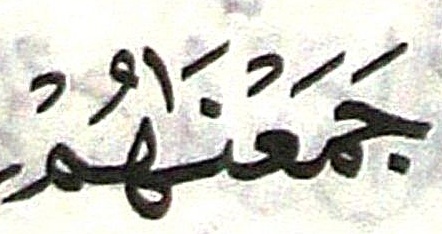 جَمَعْنَٰهُمْ